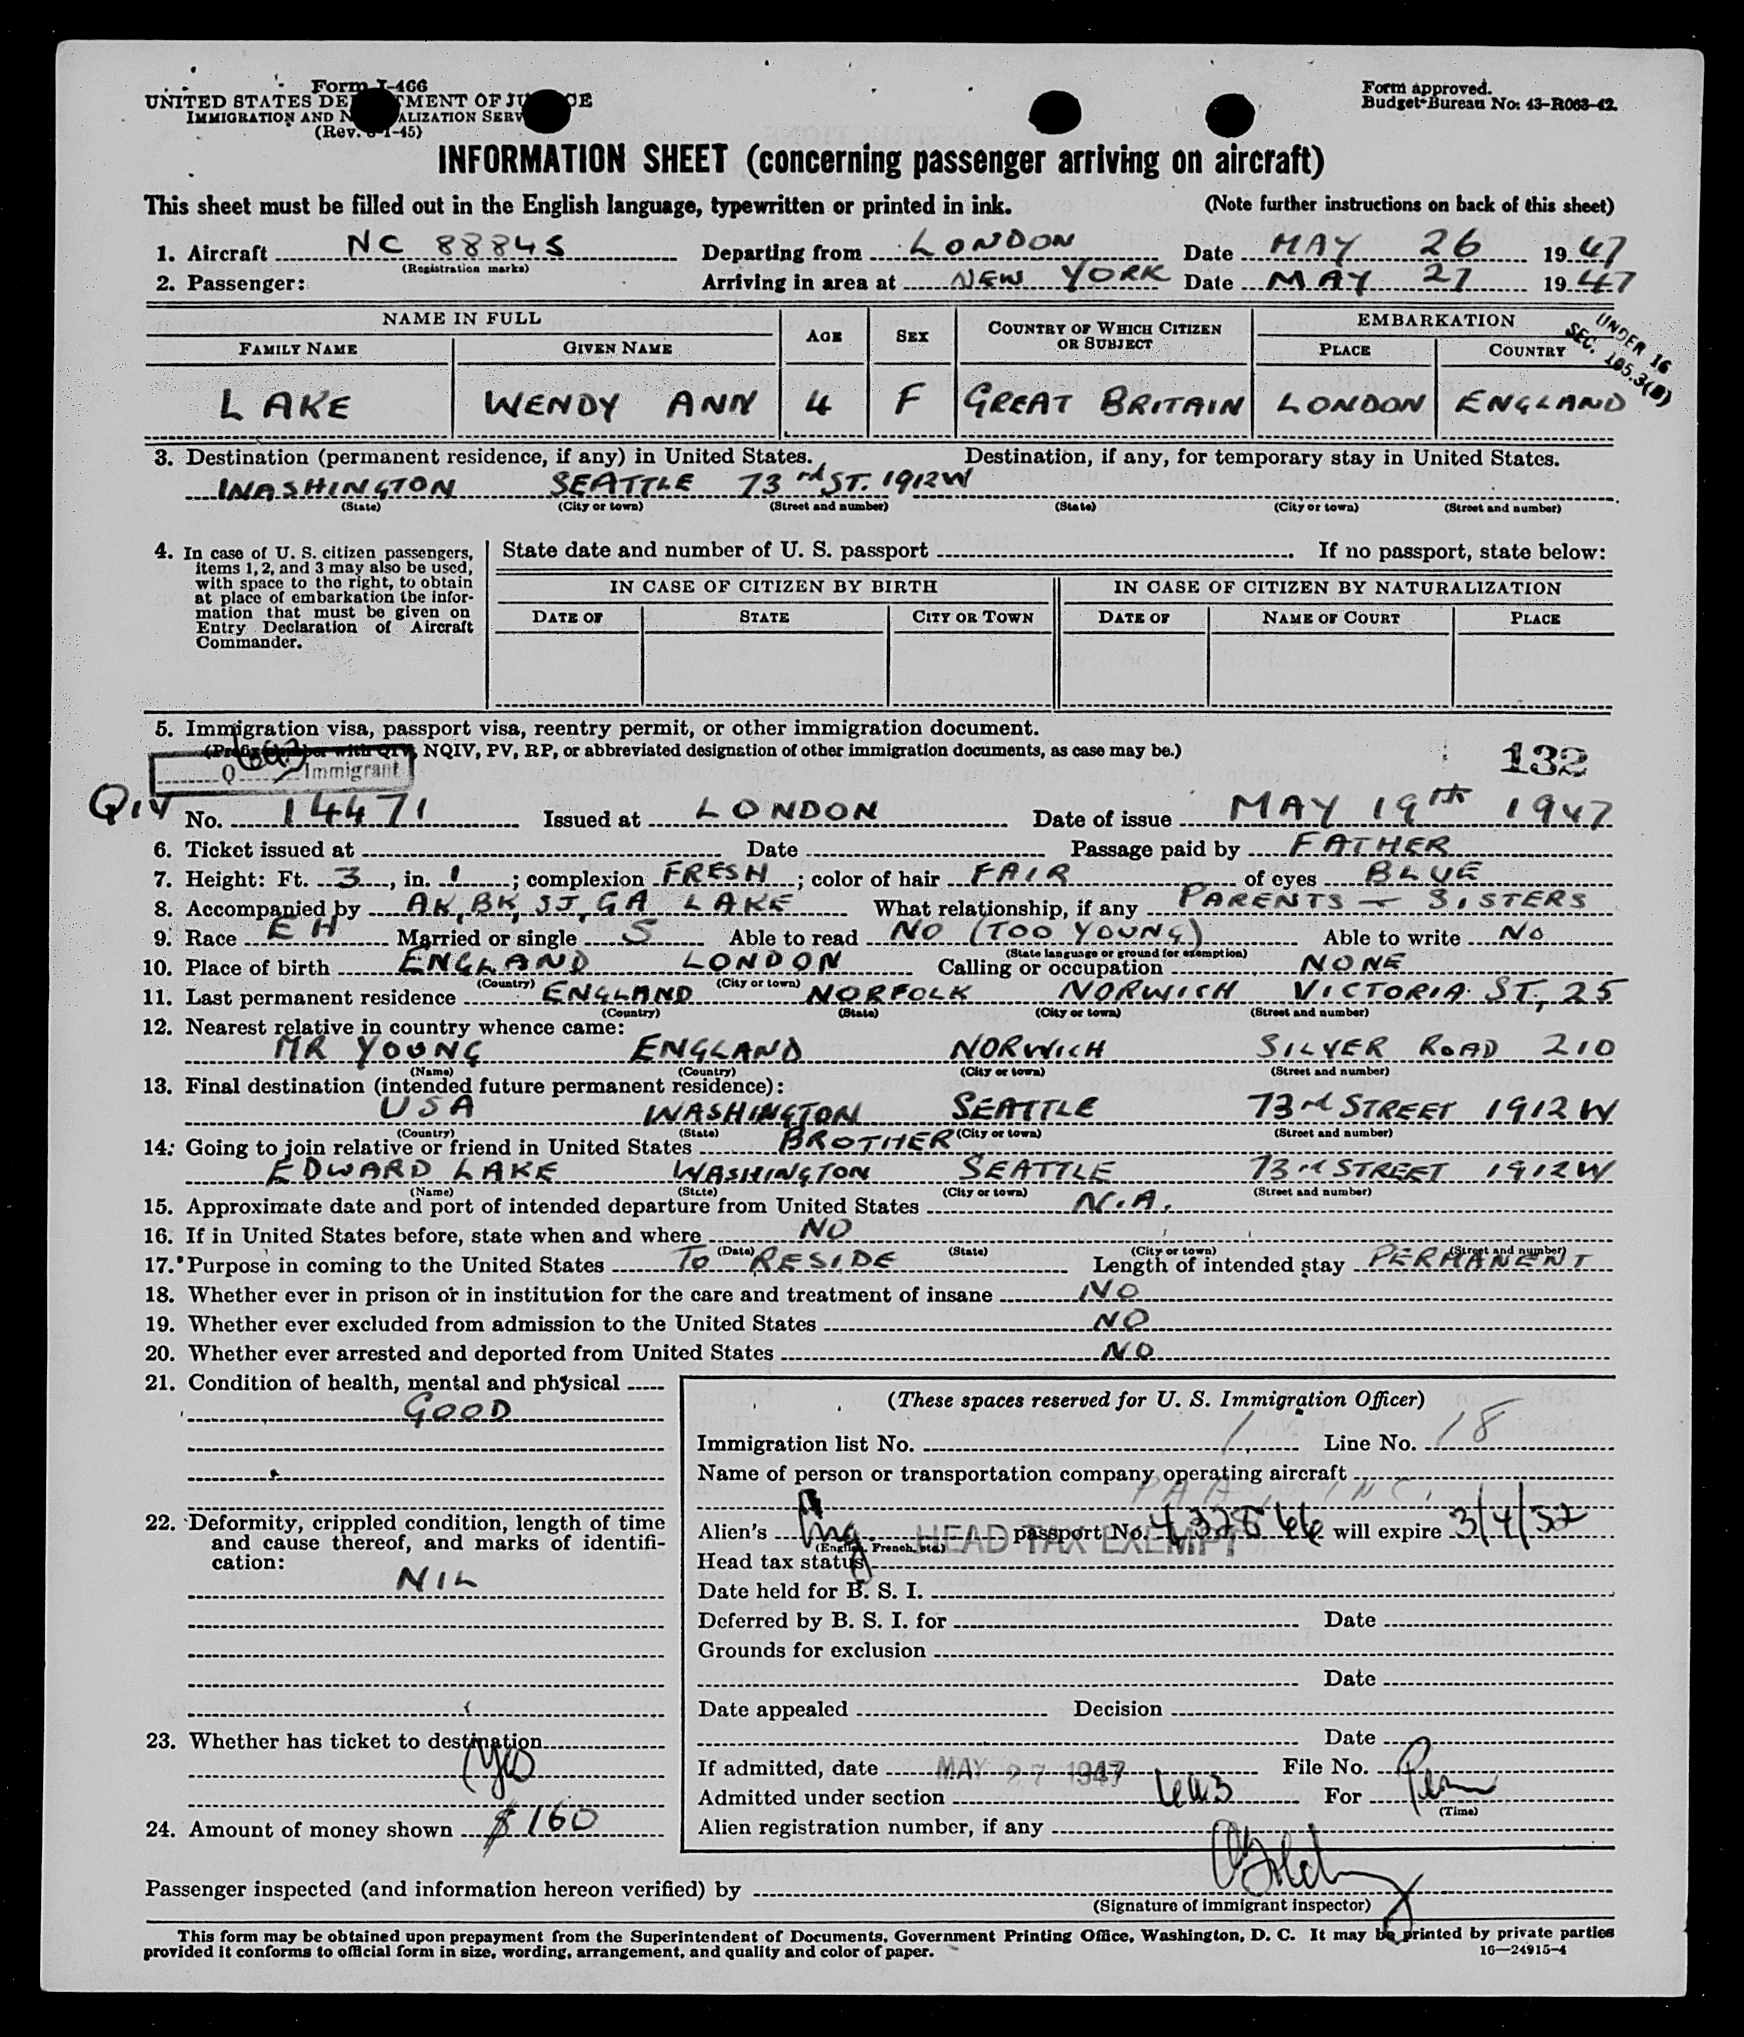 Form I-466
UNITED STATES DEPARTMENT OF JUSTICE
IMMIGRATION AND NATURALIZATION SERV
(Rev. -1-45)
Form approved.
Budget Bureau No: 43-R063-42.
INFORMATION SHEET (concerning passenger arriving on aircraft)
This sheet must be filled out in the English language, typewritten or printed in ink. (Note further instructions on back of this sheet)
1. Aircraft NC 88845 Departing from LONDON Date MAY 26 1947
(Registration marks)
2. Passenger: Arriving in area at NEW YORK Date MAY 27 1947
NAME IN FULL AGE SEX COUNTRY OF WHICH CITIZEN OR SUBJECT EMBARKATION
FAMILY NAME GIVEN NAME PLACE COUNTRY
UNDER 16
SEC. 105.3(B)
LAKE WENDY ANN 4 F GREAT BRITAIN LONDON ENGLAND
3. Destination (permanent residence, if any) in United States. Destination, if any, for temporary stay in United States.
WASHINGTON SEATTLE 73rd ST. 1912W
(State) (City or town) (Street and number) (State) (City or town) (Street and number)
4. In case of U. S. citizen passengers,
items 1, 2, and 3 may also be used,
with space to the right, to obtain
at place of embarkation the infor-
mation that must be given on
Entry Declaration of Aircraft
Commander.
State date and number of U. S. passport . If no passport, state below:
IN CASE OF CITIZEN BY BIRTH IN CASE OF CITIZEN BY NATURALIZATION
DATE OF STATE CITY OR TOWN DATE OF NAME OF COURT PLACE
5. Immigration visa, passport visa, reentry permit, or other immigration document.
(Prefix number with QIV, NQIV, PV, RP, or abbreviated designation of other immigration documents, as case may be.)
Q Immigrant
132
QIV No. 14471 Issued at LONDON Date of issue MAY 19th 1947
6. Ticket issued at Date Passage paid by FATHER
7. Height: Ft. 3, in. 1; complexion FRESH; color of hair FAIR of eyes BLUE
8. Accompanied by AK, BK, SJ, GA LAKE What relationship, if any PARENTS + SISTERS
9. Race EH Married or single S Able to read NO (TOO YOUNG) Able to write NO
(State language or ground for exemption)
10. Place of birth ENGLAND LONDON Calling or occupation NONE
(Country) (City or town)
11. Last permanent residence ENGLAND NORFOLK NORWICH VICTORIA ST, 25
(Country) (State) (City or town) (Street and number)
12. Nearest relative in country whence came:
MR YOUNG ENGLAND NORWICH SILVER ROAD 210
(Name) (Country) (City or town) (Street and number)
13. Final destination (intended future permanent residence):
USA WASHINGTON SEATTLE 73rd STREET 1912W
(Country) (State) (City or town) (Street and number)
14. Going to join relative or friend in United States BROTHER
EDWARD LAKE WASHINGTON SEATTLE 73rd STREET 1912W
(Name) (State) (City or town) (Street and number)
15. Approximate date and port of intended departure from United States N.A.
16. If in United States before, state when and where NO
(Date) (State) (City or town) (Street and number)
17. Purpose in coming to the United States TO RESIDE Length of intended stay PERMANENT
18. Whether ever in prison or in institution for the care and treatment of insane NO
19. Whether ever excluded from admission to the United States NO
20. Whether ever arrested and deported from United States NO
21. Condition of health, mental and physical
GOOD
22. Deformity, crippled condition, length of time
and cause thereof, and marks of identifi-
cation:
NIL
23. Whether has ticket to destination
yes
24. Amount of money shown $160
(These spaces reserved for U. S. Immigration Officer)
Immigration list No. 1 Line No. 18
Name of person or transportation company operating aircraft
PAA, INC.
Alien's Eng passport No. 432866 will expire 3/4/52
(English, French, etc.)
Head tax status HEAD TAX EXEMPT
Date held for B. S. I.
Deferred by B. S. I. for Date
Grounds for exclusion
Date
Date appealed Decision
Date
If admitted, date MAY 27 1947 File No.
Admitted under section 6a3 For Perm
(Time)
Alien registration number, if any
Passenger inspected (and information hereon verified) by
(Signature of immigrant inspector)
This form may be obtained upon prepayment from the Superintendent of Documents, Government Printing Office, Washington, D. C. It may be printed by private parties
provided it conforms to official form in size, wording, arrangement, and quality and color of paper. 16—24915-4